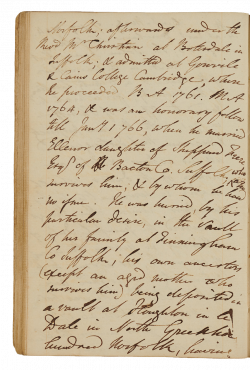 Norfolk; afterwards under the
Revd Mr Christian at Botesdale in
Suffolk; & admitted at Gonville
& Caius College Cambridge, where
he proceeded B A 1761. M A
1764, & was an honorary fellow
till Jany 1 1766, when he married
Ellenor daughter of Sheppard Frere
Esq) of Bacton Co, Suff: who
survives him, & by whom he has
no issue. He was buried by his
particular desire, in the Vault
of his family at Finningham
Co Suffolk; his own ancestors
(except an aged mother who
survives him) being deposited in
a vault at Houghton in le
Dale in North Greenhoe
hundred Norfolk, having